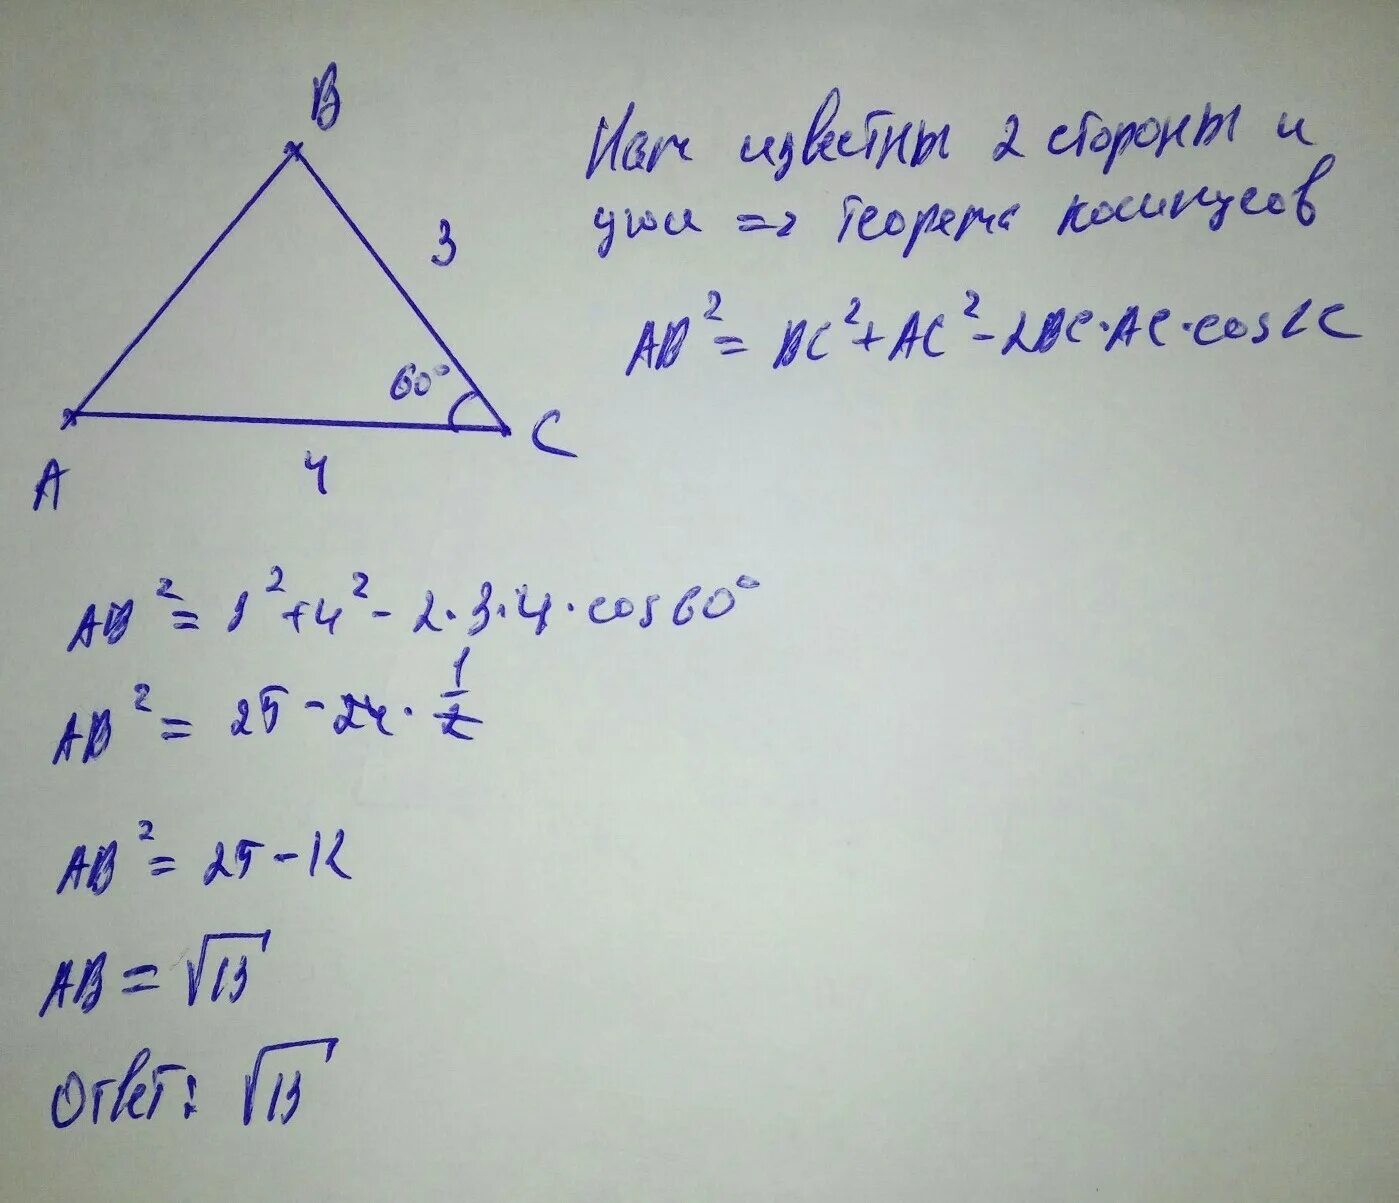 B
3
60°
A
4
C
Нам известны 2 стороны и
угол => теорема косинусов
AB² = BC² + AC² - 2BC·AC·cos∠C
AB² = 3² + 4² - 2·3·4·cos60°
AB² = 25 - 24 · 1/2
AB² = 25 - 12
AB = √13
Ответ: √13